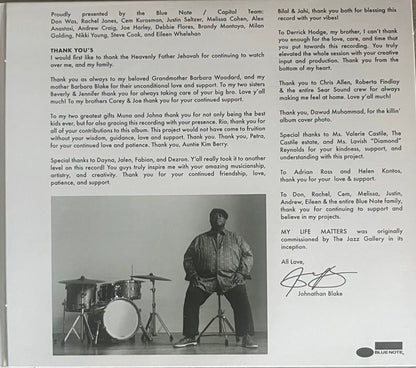 Proudly presented by the Blue Note / Capitol Team:
Don Was, Rachel Jones, Cem Kurosman, Justin Seltzer, Melissa Cohen, Alex
Anastasi, Andrew Craig, Joe Harley, Debbie Flores, Brandy Montoya, Milan
Golding, Nikki Young, Steve Cook, and Eileen Whelehan
THANK YOU'S
I would first like to thank the Heavenly Father Jehovah for continuing to watch
over me, and my family.
Thank you as always to my beloved Grandmother Barbara Woodard, and my
mother Barbara Blake for their unconditional love and support. To my two sisters
Beverly & Jennifer thank you for always taking care of your big bro. Love y'all
much! To my brothers Carey & Joe thank you for your continued support.
To my two greatest gifts Muna and Johna thank you for not only being the best
kids ever, but for also gracing this recording with your presence. Rio, thank you for
all of your contributions to this album. This project would not have come to fruition
without your wisdom, guidance, love and support. Thank you. Thank you, Petra,
for your continued love and patience. Thank you, Auntie Kim Berry.
Special thanks to Dayna, Jalen, Fabian, and Dezron. Y'all really took it to another
level on this record! You guys truly inspire me with your amazing musicianship,
artistry, and creativity. Thank you for your continued friendship, love,
patience, and support.
Bilal & Jahi, thank you both for blessing this
record with your vibes!
To Derrick Hodge, my brother, I can't thank
you enough for the love, care, and time that
you put towards this recording. You truly
elevated the whole session with your creative
input and production. Thank you from the
bottom of my heart.
Thank you to Chris Allen, Roberta Findlay
& the entire Sear Sound crew for always
making me feel at home. Love y'all much!
Thank you, Dawud Muhammad, for the killin'
album cover photo.
Special thanks to Ms. Valerie Castile, The
Castile estate, and Ms. Lavish "Diamond"
Reynolds for your kindness, support, and
understanding with this project.
To Adrian Ross and Helen Kontos,
thank you for your love & support.
To Don, Rachel, Cem, Melissa, Justin,
Andrew, Eileen & the entire Blue Note family,
thank you for continuing to support and
believe in my projects.
MY LIFE MATTERS was originally
commissioned by The Jazz Gallery in
its inception.
All Love,
Johnathan Blake
BLUE NOTE